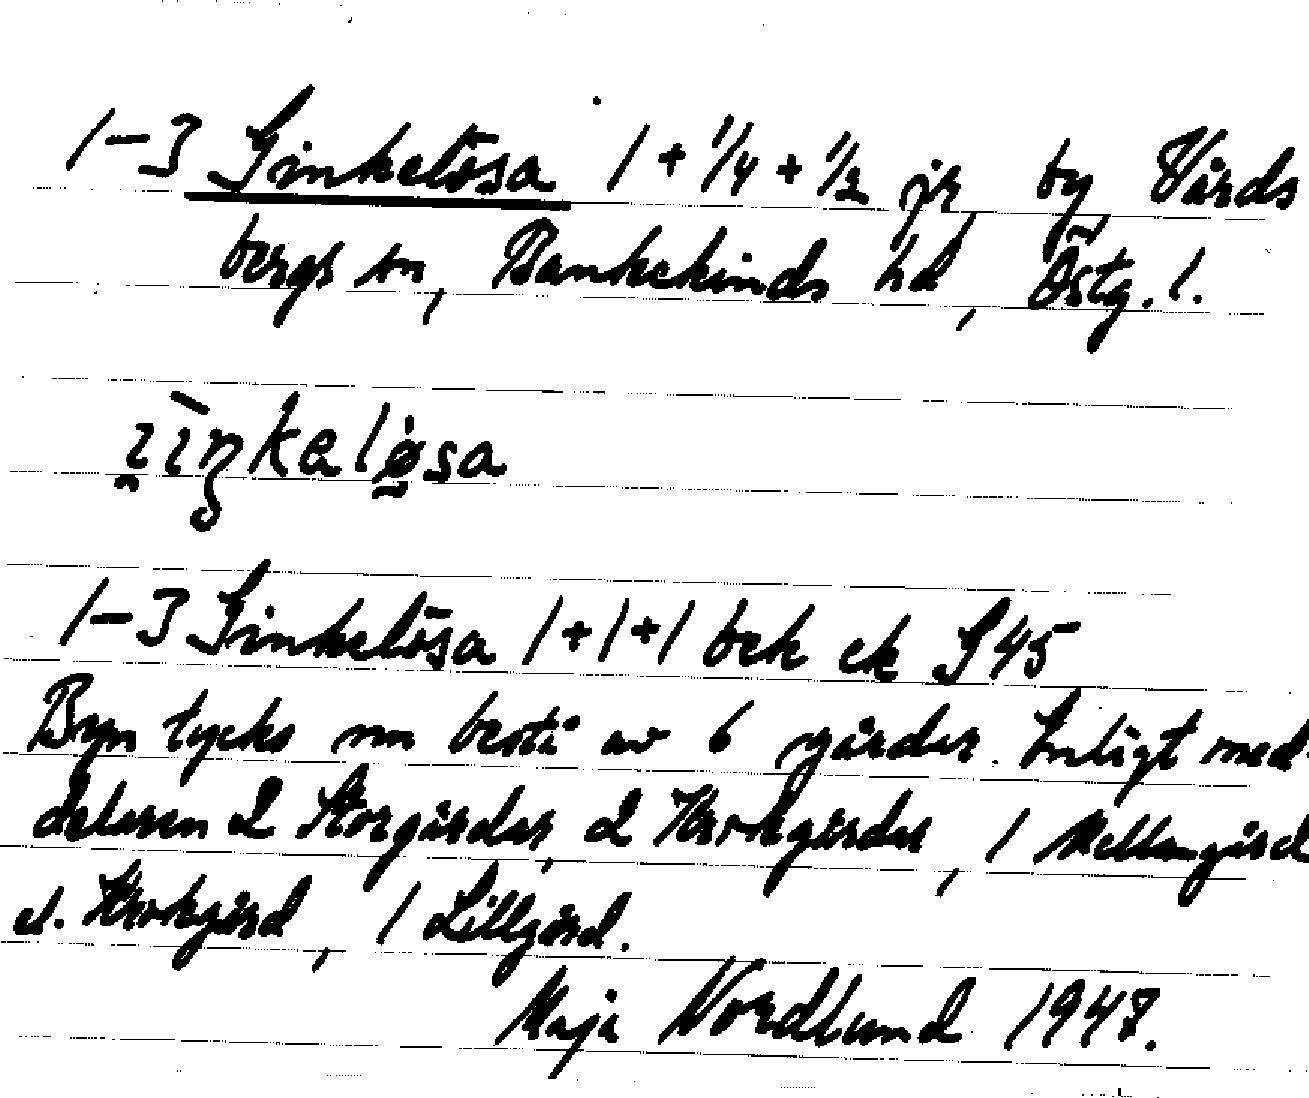 1-3 Ginkelösa 1 + 1/4 + 1/2 jr by Vårds
bergs sn, Bankekinds hd, Östg. l.
1-3 Ginkelösa 1+1+1 bek ek S 45
Byn tycks nu bestå av 6 gårdar. Enligt med-
delaren 2 Storgårdar, 2 Krokgårdar, 1 Mellangård
el. Krokgård, 1 Lillgård.
Maja Nordlund 1947.